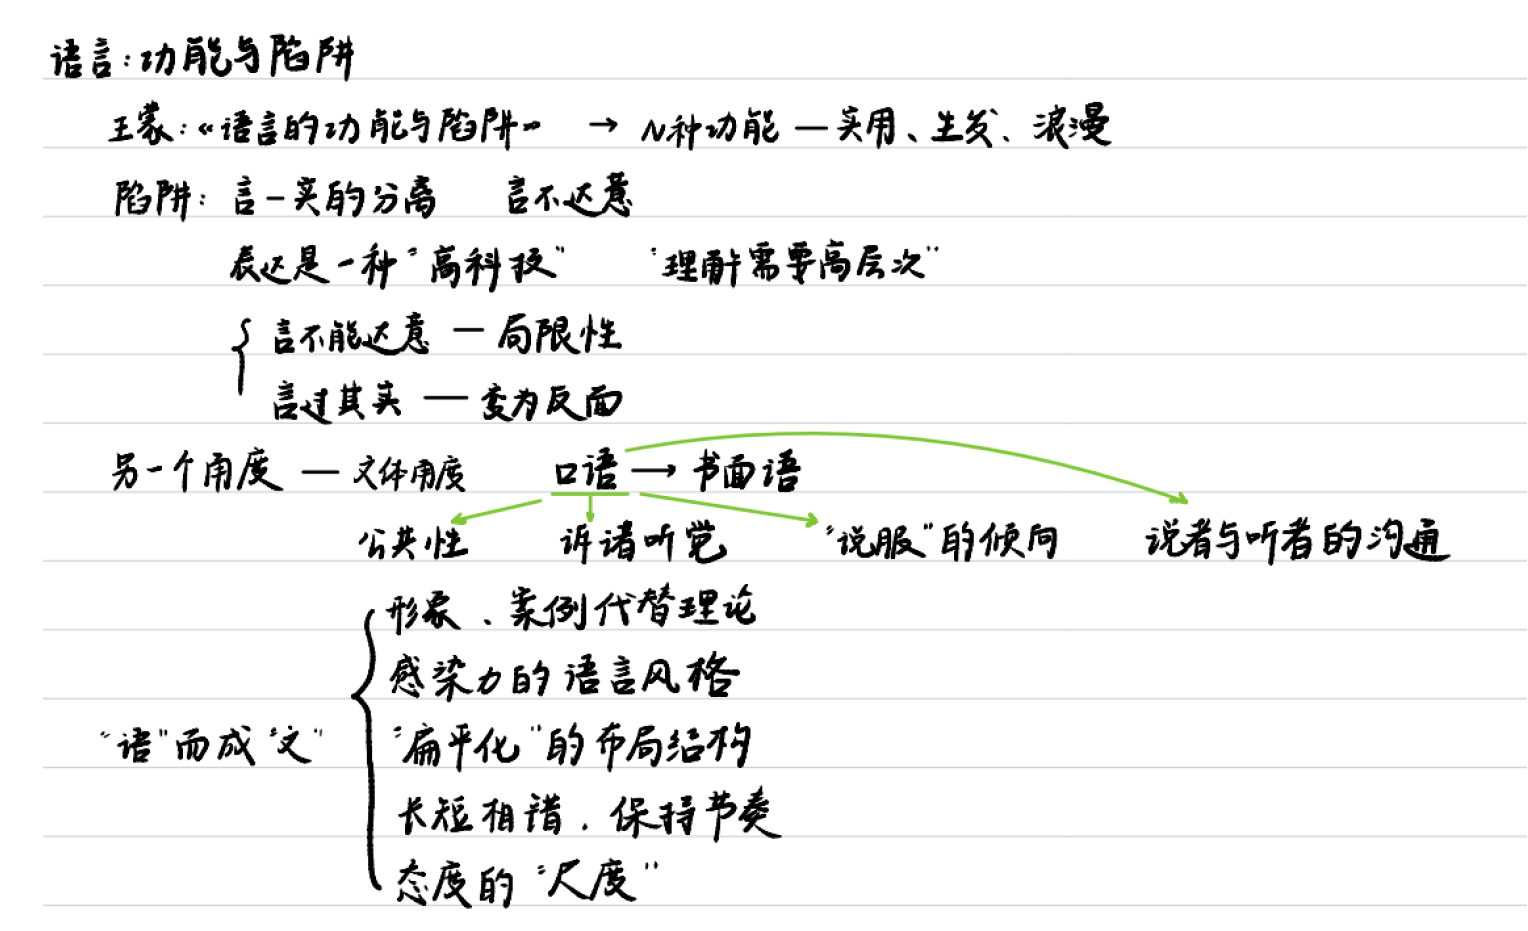 语言:功能与陷阱
王蒙:《语言的功能与陷阱》 → N种功能 — 实用、生发、浪漫
陷阱: 言-实的分离 言不达意
表达是一种“高科技” “理解需要高层次”
言不能达意 — 局限性
言过其实 — 变为反面
另一个角度 — 文体角度 口语 → 书面语
公共性 诉诸听觉 “说服”的倾向 说者与听者的沟通
形象、案例代替理论
感染力的语言风格
“语”而成“文” “扁平化”的布局结构
长短相错.保持节奏
态度的“尺度”